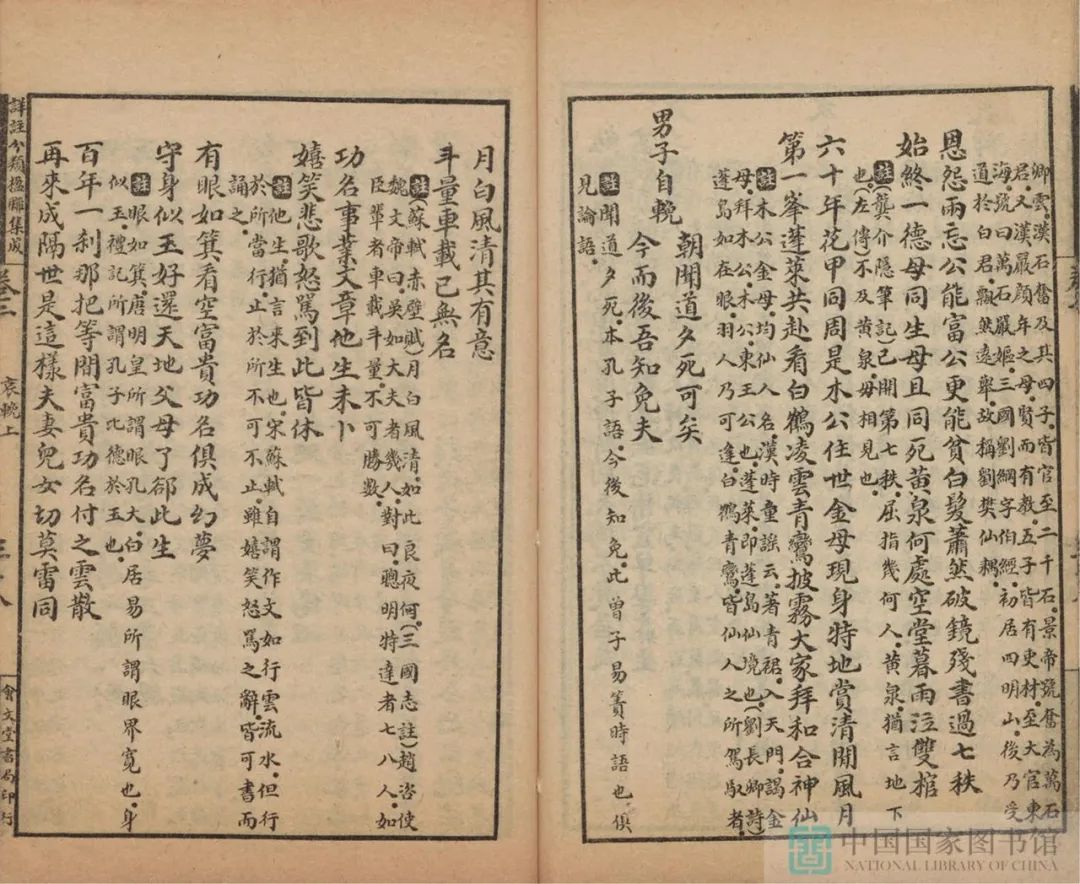 卿雲。漢石奮及其四子。皆官至二千石。景帝號奮為萬石
君。又漢嚴顏年之母。賢而有教。五子皆有吏材。至大官。東
海號曰萬石嚴嫗。三國劉綱字伯經。初居四明山。後乃受
道於白君。飄然遠舉。故稱劉樊仙耦。
恩怨兩忘公能富公更能貧白髮蕭然破鏡殘書過七秩
始終一德母同生母且同死黃泉何處空堂暮雨泣雙棺
註(龔介隱筆記)已開第七秩。屈指幾何人。黃泉。猶言地下
也。(左傳)不及黃泉。毋相見也。
六十年花甲同周是木公住世金母現身特地賞清閒風月
第一峯蓬萊共赴看白鶴凌雲青鸞披霧大家拜和合神仙
註木公金母。均仙人名。漢時童謠云。著青裙。入天門。謁金
母。拜木公。木公。東王公也。蓬萊。即蓬島仙境也。(劉長卿詩)
蓬島如在眼。羽人乃可逢。白鶴青鸞。皆仙人之所駕馭者。
男子自輓
朝聞道夕死可矣
今而後吾知免夫
註聞道夕死。本孔子語。今後知免。此曾子易簀時語也。俱
見論語。
月白風清其有意
斗量車載已無名
註(蘇軾赤壁賦)月白風清。如此良夜何。(三國志註)趙咨使
魏。文帝曰。吳如大夫者幾人。對曰。聰明特達者七八人。如
臣輩者車載斗量。不可勝數。
功名事業文章他生未卜
嬉笑悲歌怒罵到此皆休
註他生。猶言來生也。宋蘇軾自謂作文如行雲流水。但行
於所當行。止於所不可不止。雖嬉笑怒罵之辭。皆可書而
誦之。
有眼如箕看空富貴功名俱成幻夢
守身似玉好還天地父母了卻此生
註眼如箕。唐明皇所謂眼孔大。白居易所謂眼界寬也。身
似玉。禮記所謂孔子比德於玉也。
百年一剎那把等閒富貴功名付之雲散
再來成隔世是這樣夫妻兒女切莫雷同
詳註分類楹聯集成
卷三
哀輓上
三十八
會文堂書局印行
中国国家图书馆
NATIONAL LIBRARY OF CHINA